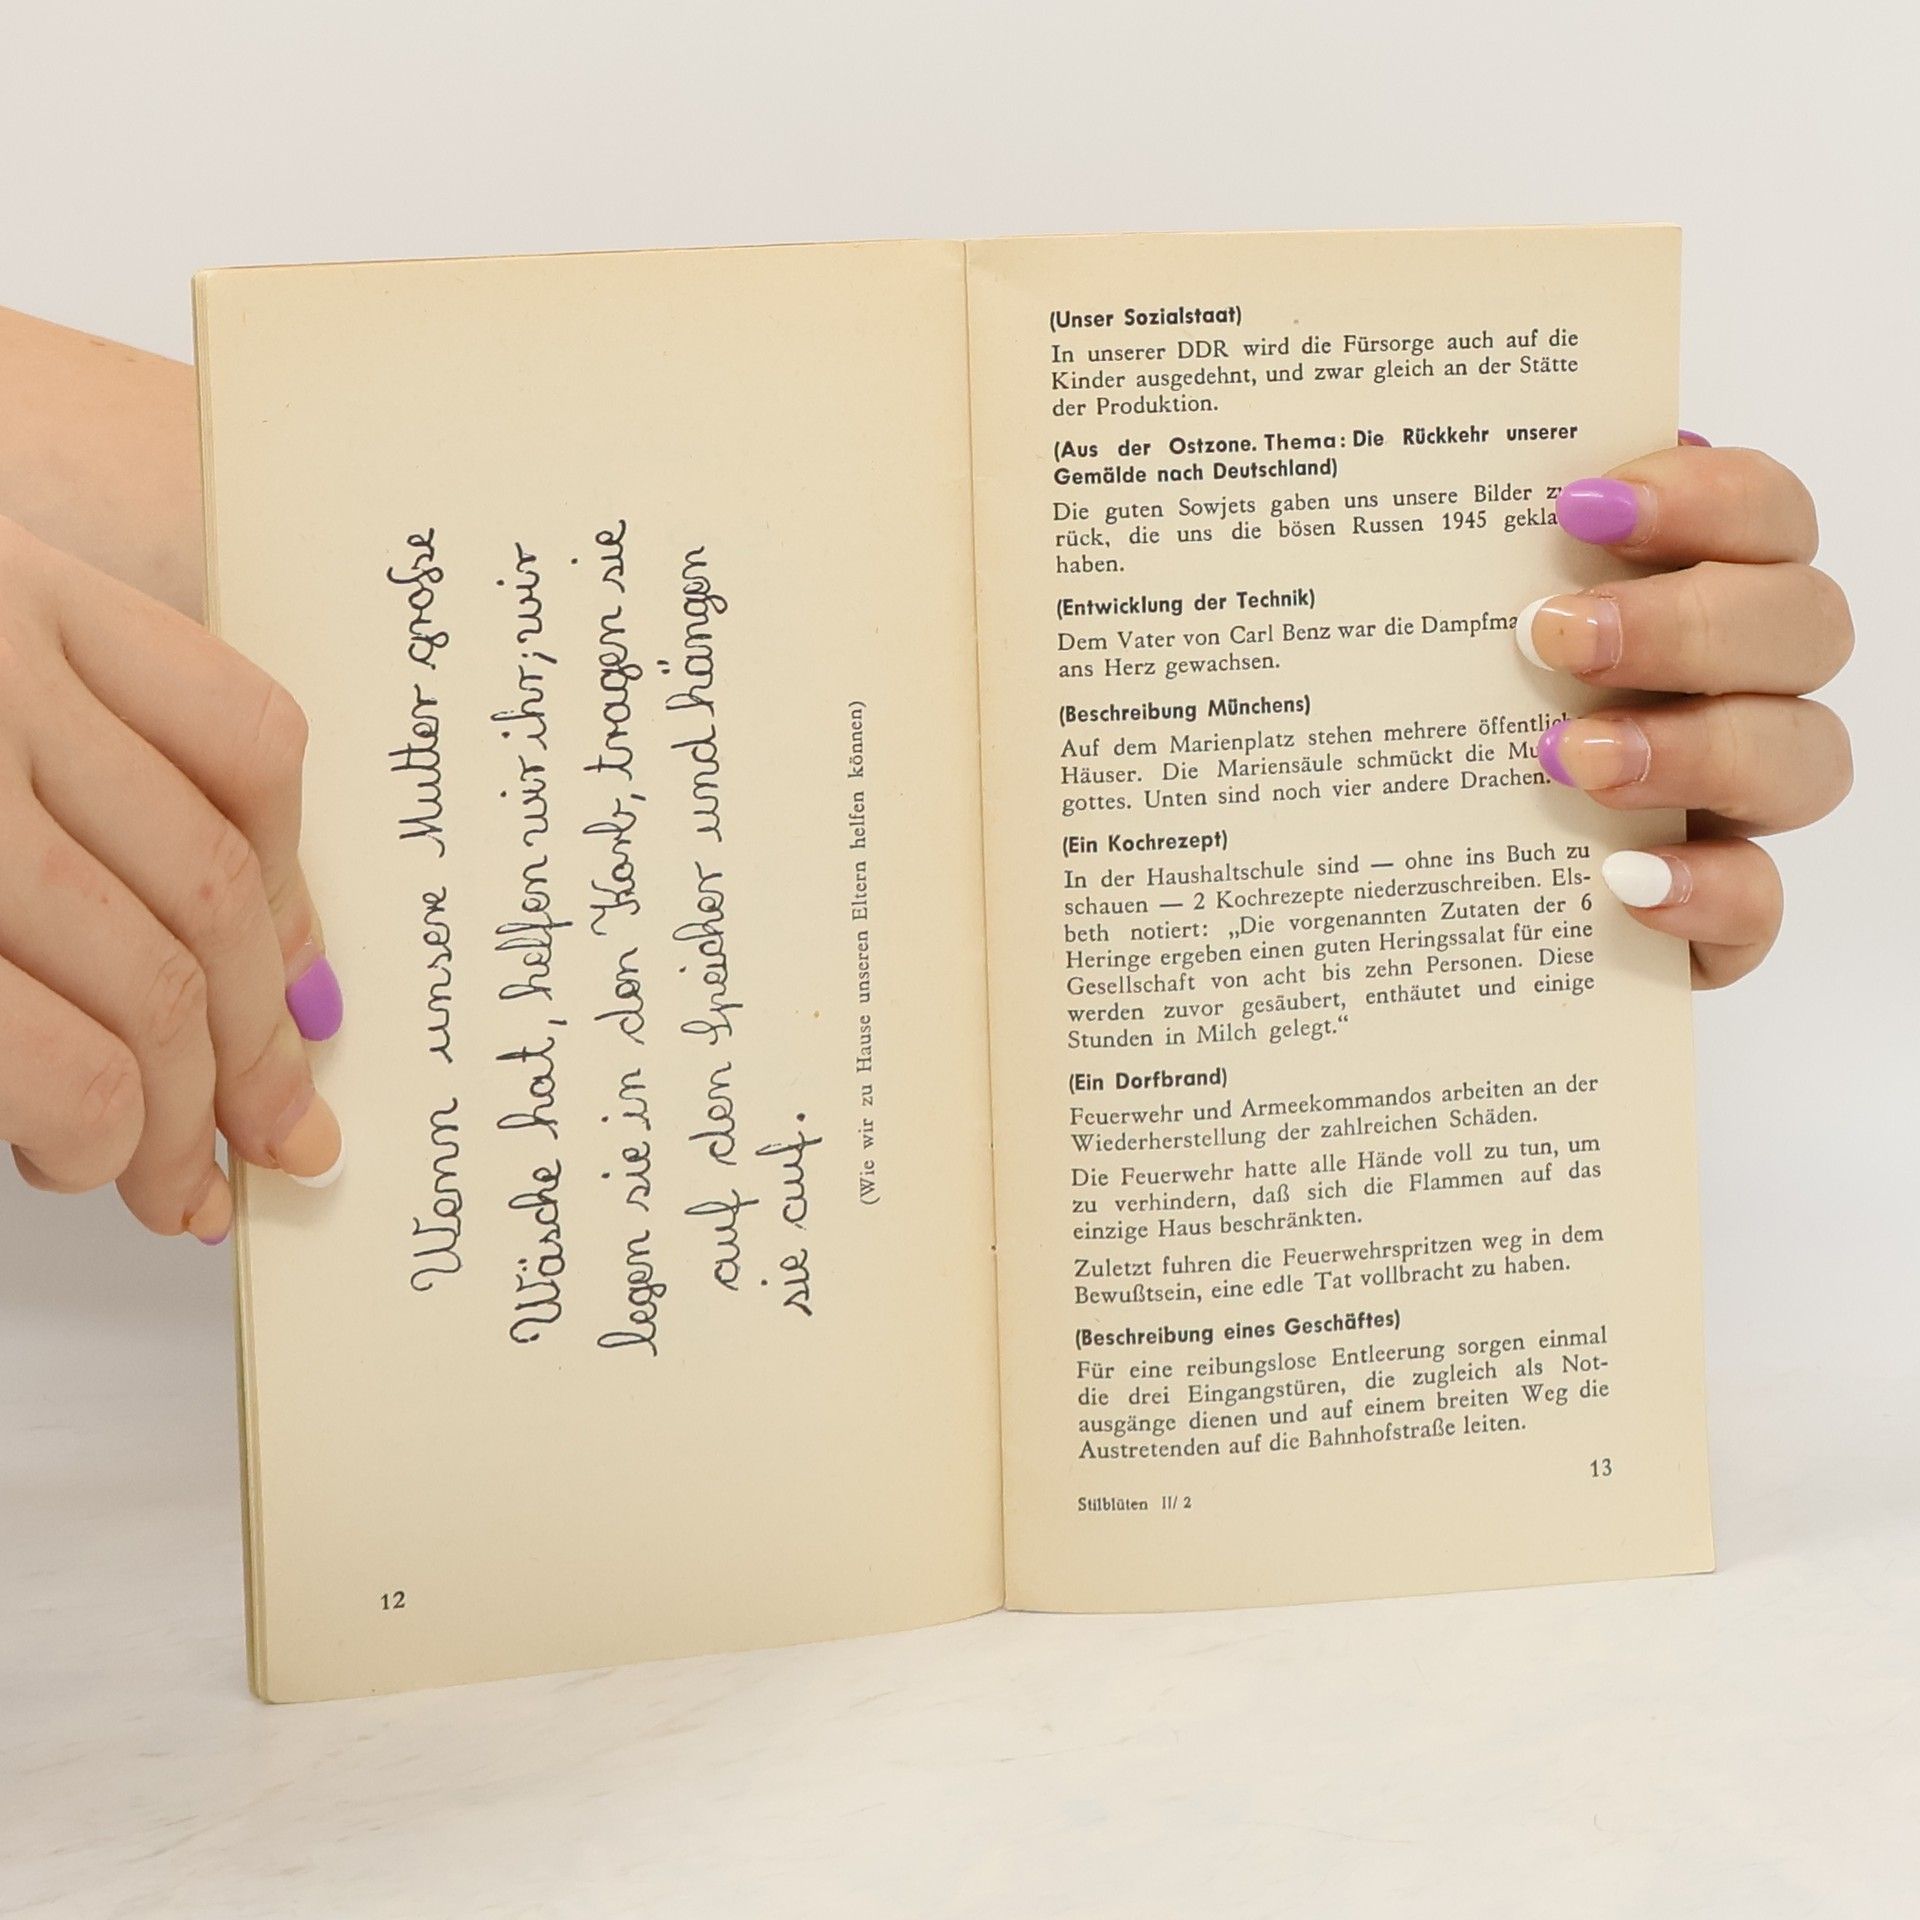 Wenn unsere Mutter große
Wäsche hat, helfen wir ihr; wir
legen sie in den Korb, tragen sie
auf den Speicher und hängen
sie auf.
(Wie wir zu Hause unseren Eltern helfen können)
12
(Unser Sozialstaat)
In unserer DDR wird die Fürsorge auch auf die
Kinder ausgedehnt, und zwar gleich an der Stätte
der Produktion.
(Aus der Ostzone. Thema: Die Rückkehr unserer
Gemälde nach Deutschland)
Die guten Sowjets gaben uns unsere Bilder
rück, die uns die bösen Russen 1945
haben.
(Entwicklung der Technik)
Dem Vater von Carl Benz war die
ans Herz gewachsen.
(Beschreibung Münchens)
Auf dem Marienplatz stehen mehrere
Häuser. Die Mariensäule schmückt die
gottes. Unten sind noch vier andere Drachen.
(Ein Kochrezept)
In der Haushaltschule sind — ohne ins Buch zu
schauen — 2 Kochrezepte niederzuschreiben. Els-
beth notiert: „Die vorgenannten Zutaten der 6
Heringe ergeben einen guten Heringssalat für eine
Gesellschaft von acht bis zehn Personen. Diese
werden zuvor gesäubert, enthäutet und einige
Stunden in Milch gelegt.“
(Ein Dorfbrand)
Feuerwehr und Armeekommandos arbeiten an der
Wiederherstellung der zahlreichen Schäden.
Die Feuerwehr hatte alle Hände voll zu tun, um
zu verhindern, daß sich die Flammen auf das
einzige Haus beschränkten.
Zuletzt fuhren die Feuerwehrspritzen weg in dem
Bewußtsein, eine edle Tat vollbracht zu haben.
(Beschreibung eines Geschäftes)
Für eine reibungslose Entleerung sorgen einmal
die drei Eingangstüren, die zugleich als Not-
ausgänge dienen und auf einem breiten Weg die
Austretenden auf die Bahnhofstraße leiten.
13
Stilblüten II/2